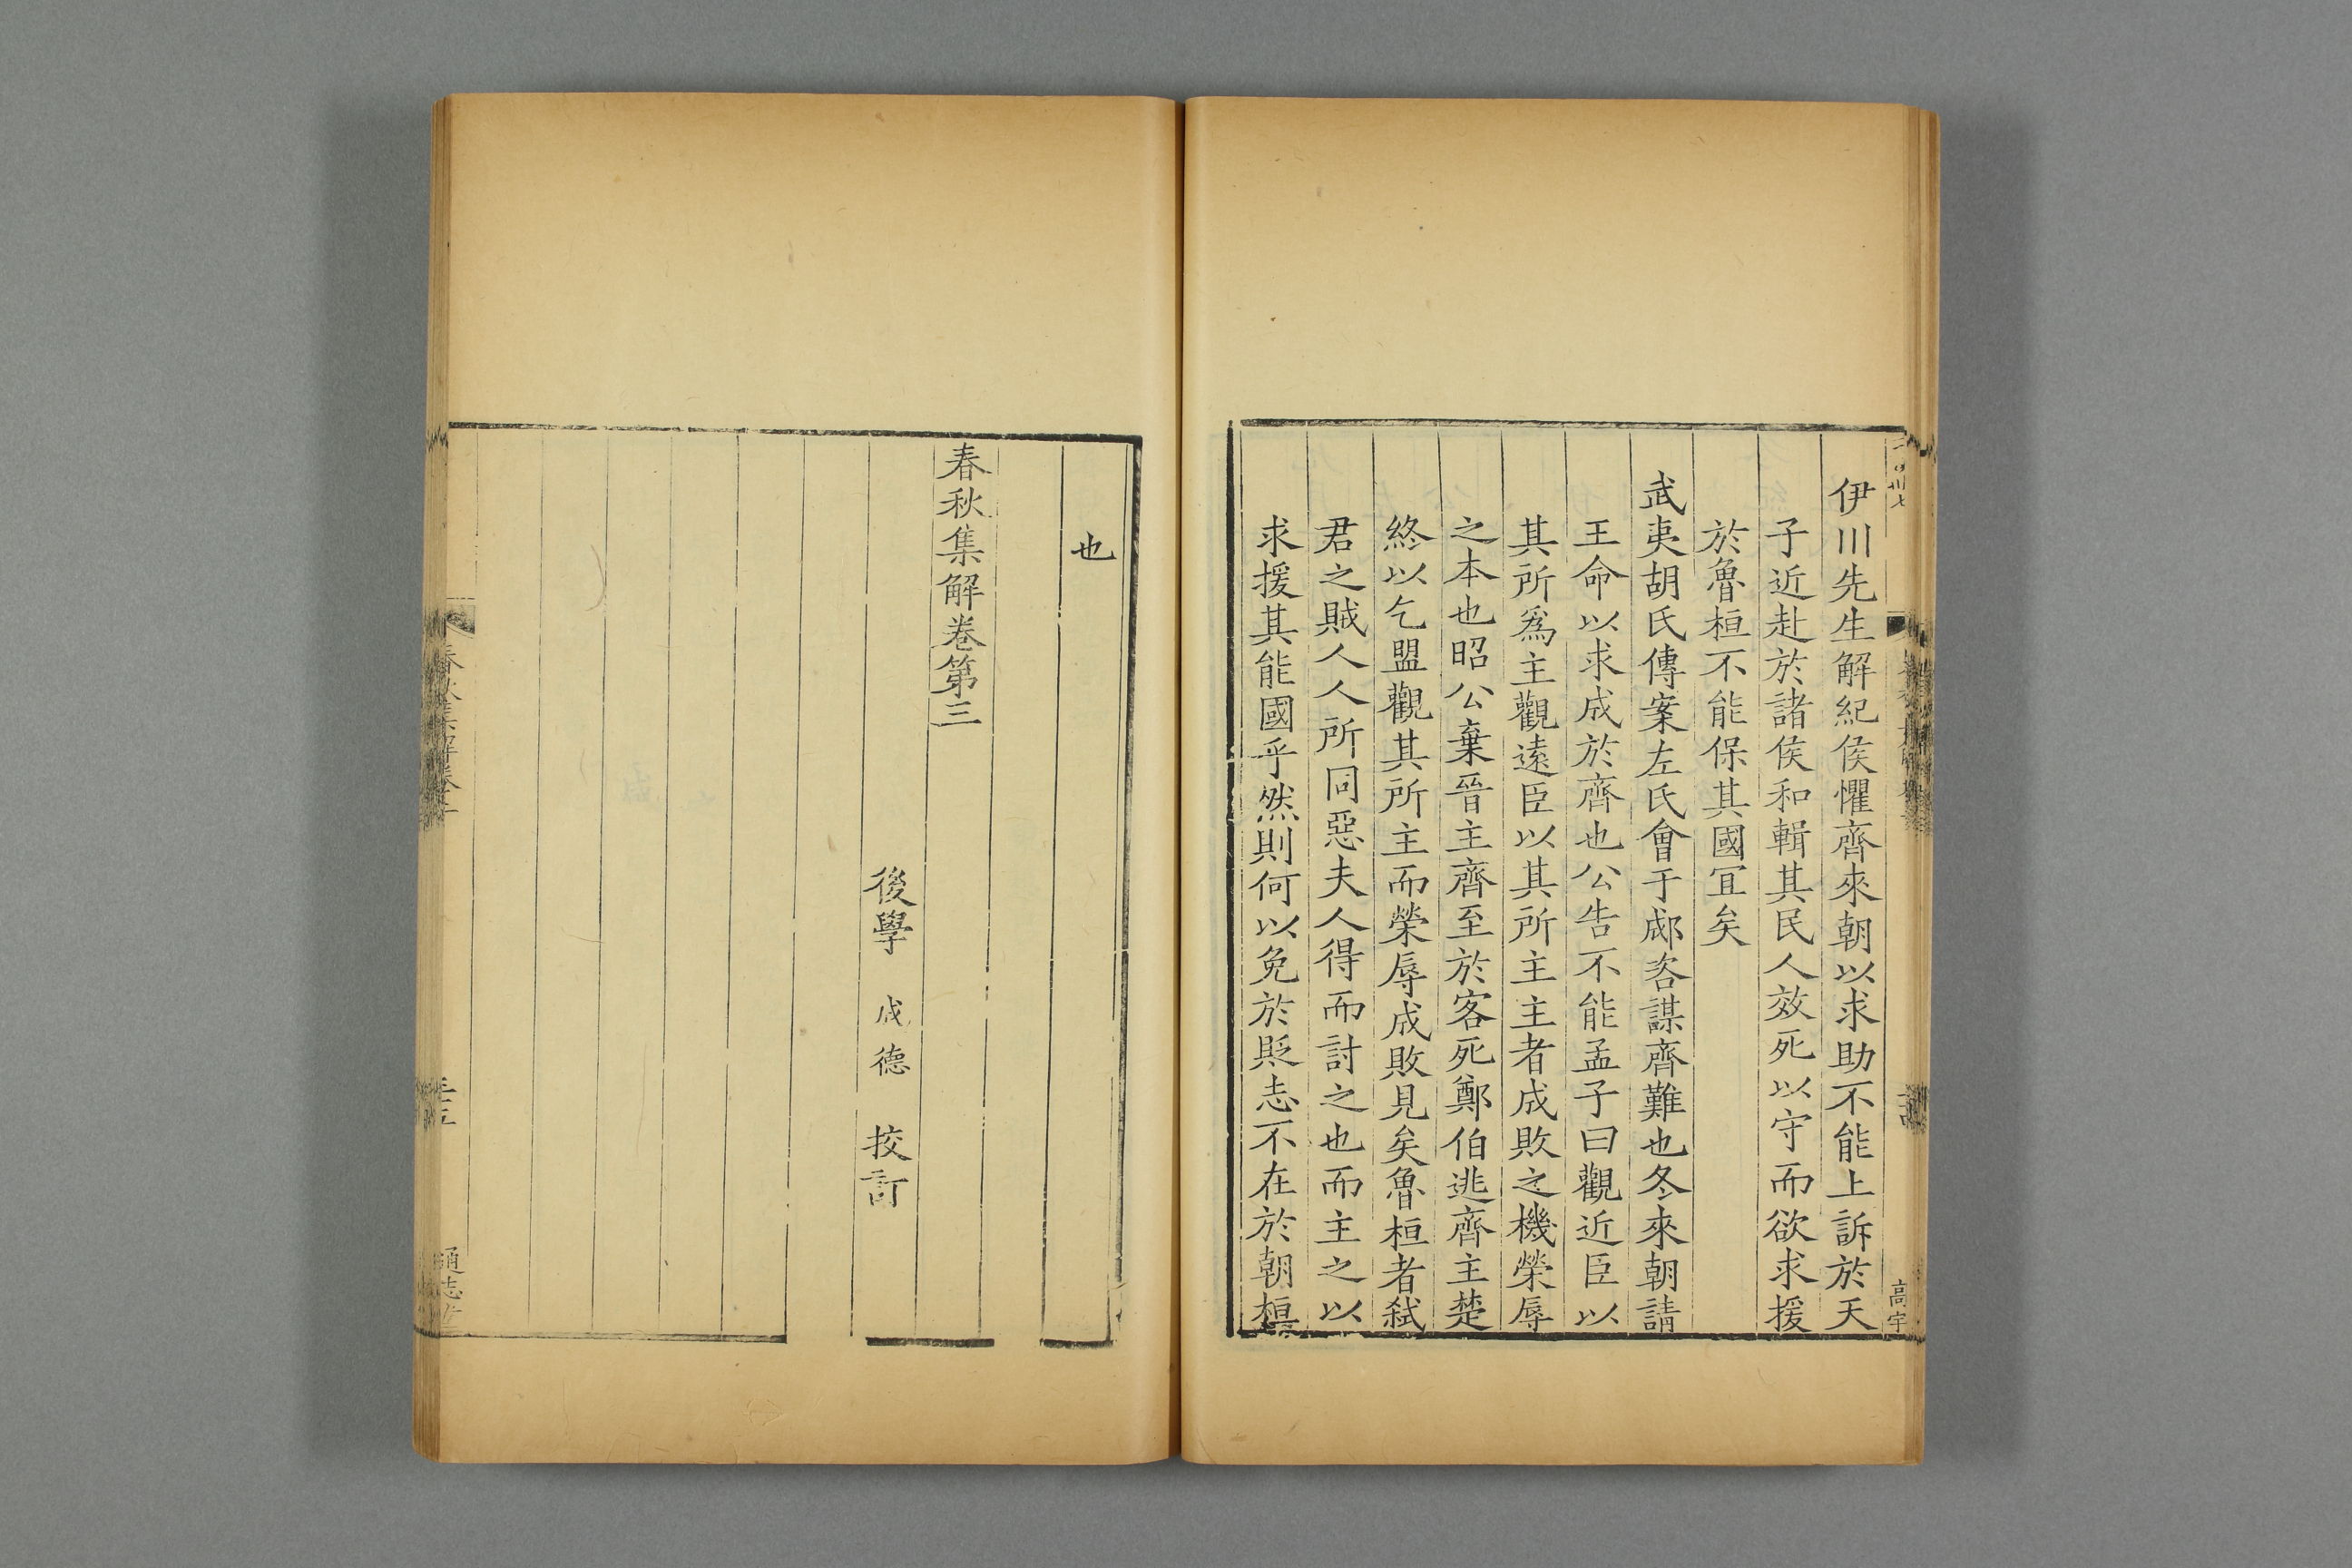 伊川先生解紀侯懼齊來朝以求助不能上訴於天
子近赴於諸侯和輯其民人效死以守而欲求援
於魯桓不能保其國宜矣
武夷胡氏傳案左氏會于郕咨謀齊難也冬來朝請
王命以求成於齊也公告不能孟子曰觀近臣以
其所爲主觀遠臣以其所主主者成敗之機榮辱
之本也昭公棄晉主齊至於客死鄭伯逃齊主楚
終以乞盟觀其所主而榮辱成敗見矣魯桓者弒
君之賊人人所同惡夫人得而討之也而主之以
求援其能國乎然則何以免於貶志不在於朝桓
高宇
也
春秋集解卷第三
後學 成德 挍訂
春秋集解卷三
三五
通志堂